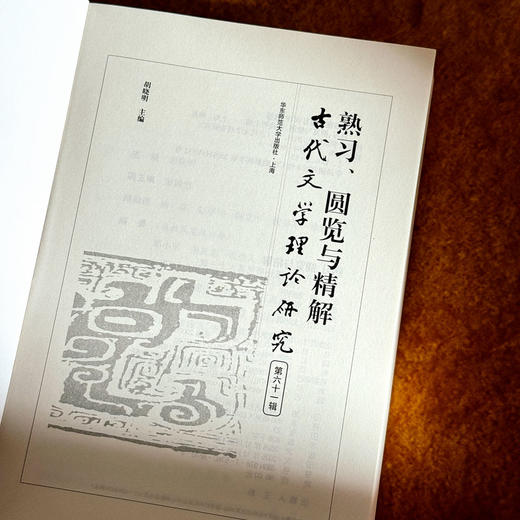 熟习、圆览与精解
古代文学理论研究
第六十一辑
华东师范大学出版社·上海
胡晓明 主编